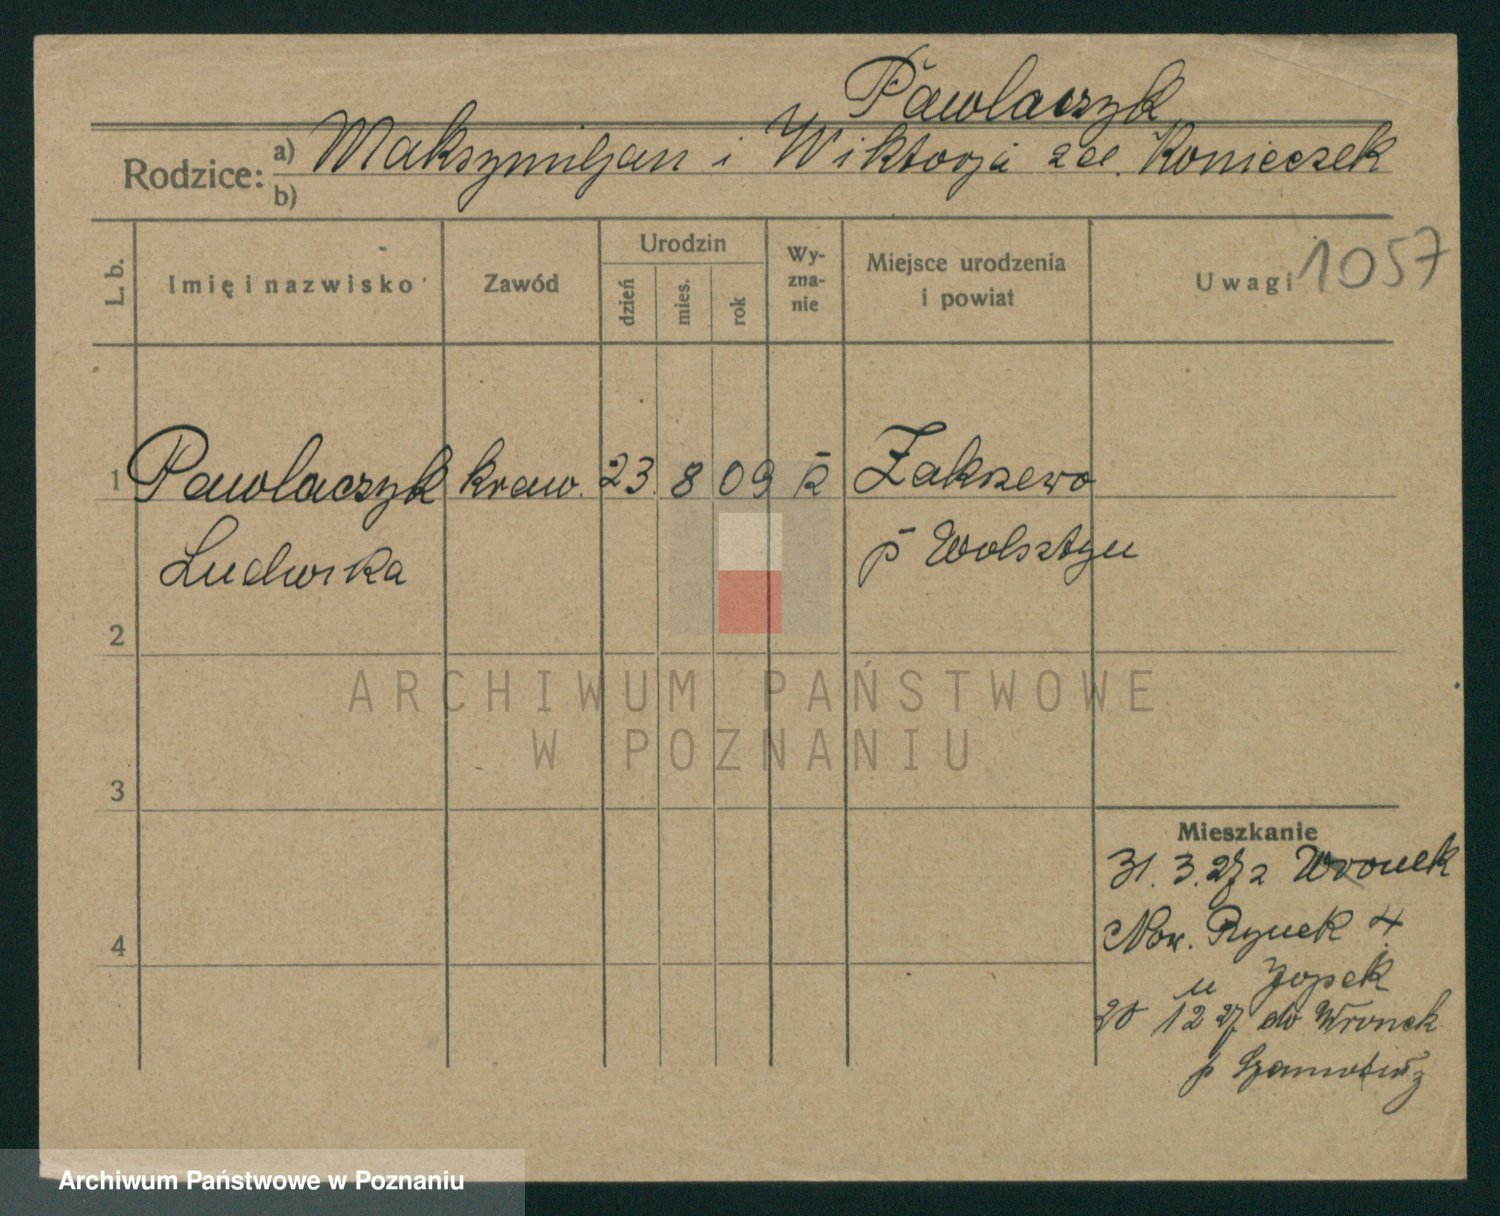 Pawlaczyk
Rodzice: a) Maksymiljan i Wiktorja zd. Konieczek
b)
L. b.
Imię i nazwisko
Zawód
Urodzin
dzień
mies.
rok
Wy-
zna-
nie
Miejsce urodzenia
i powiat
Uwagi 1057
1 Pawlaczyk kraw. 23. 8 09 k Zakszewo
Ludwika p Wolsztyn
2
ARCHIWUM PAŃSTWOWE
W POZNANIU
3
Mieszkanie
31. 3. 27 z Wronek
4 Now. Rynek 4
u Jopek
20 12 27 do Wronek
p Szamotuły
Archiwum Państwowe w Poznaniu